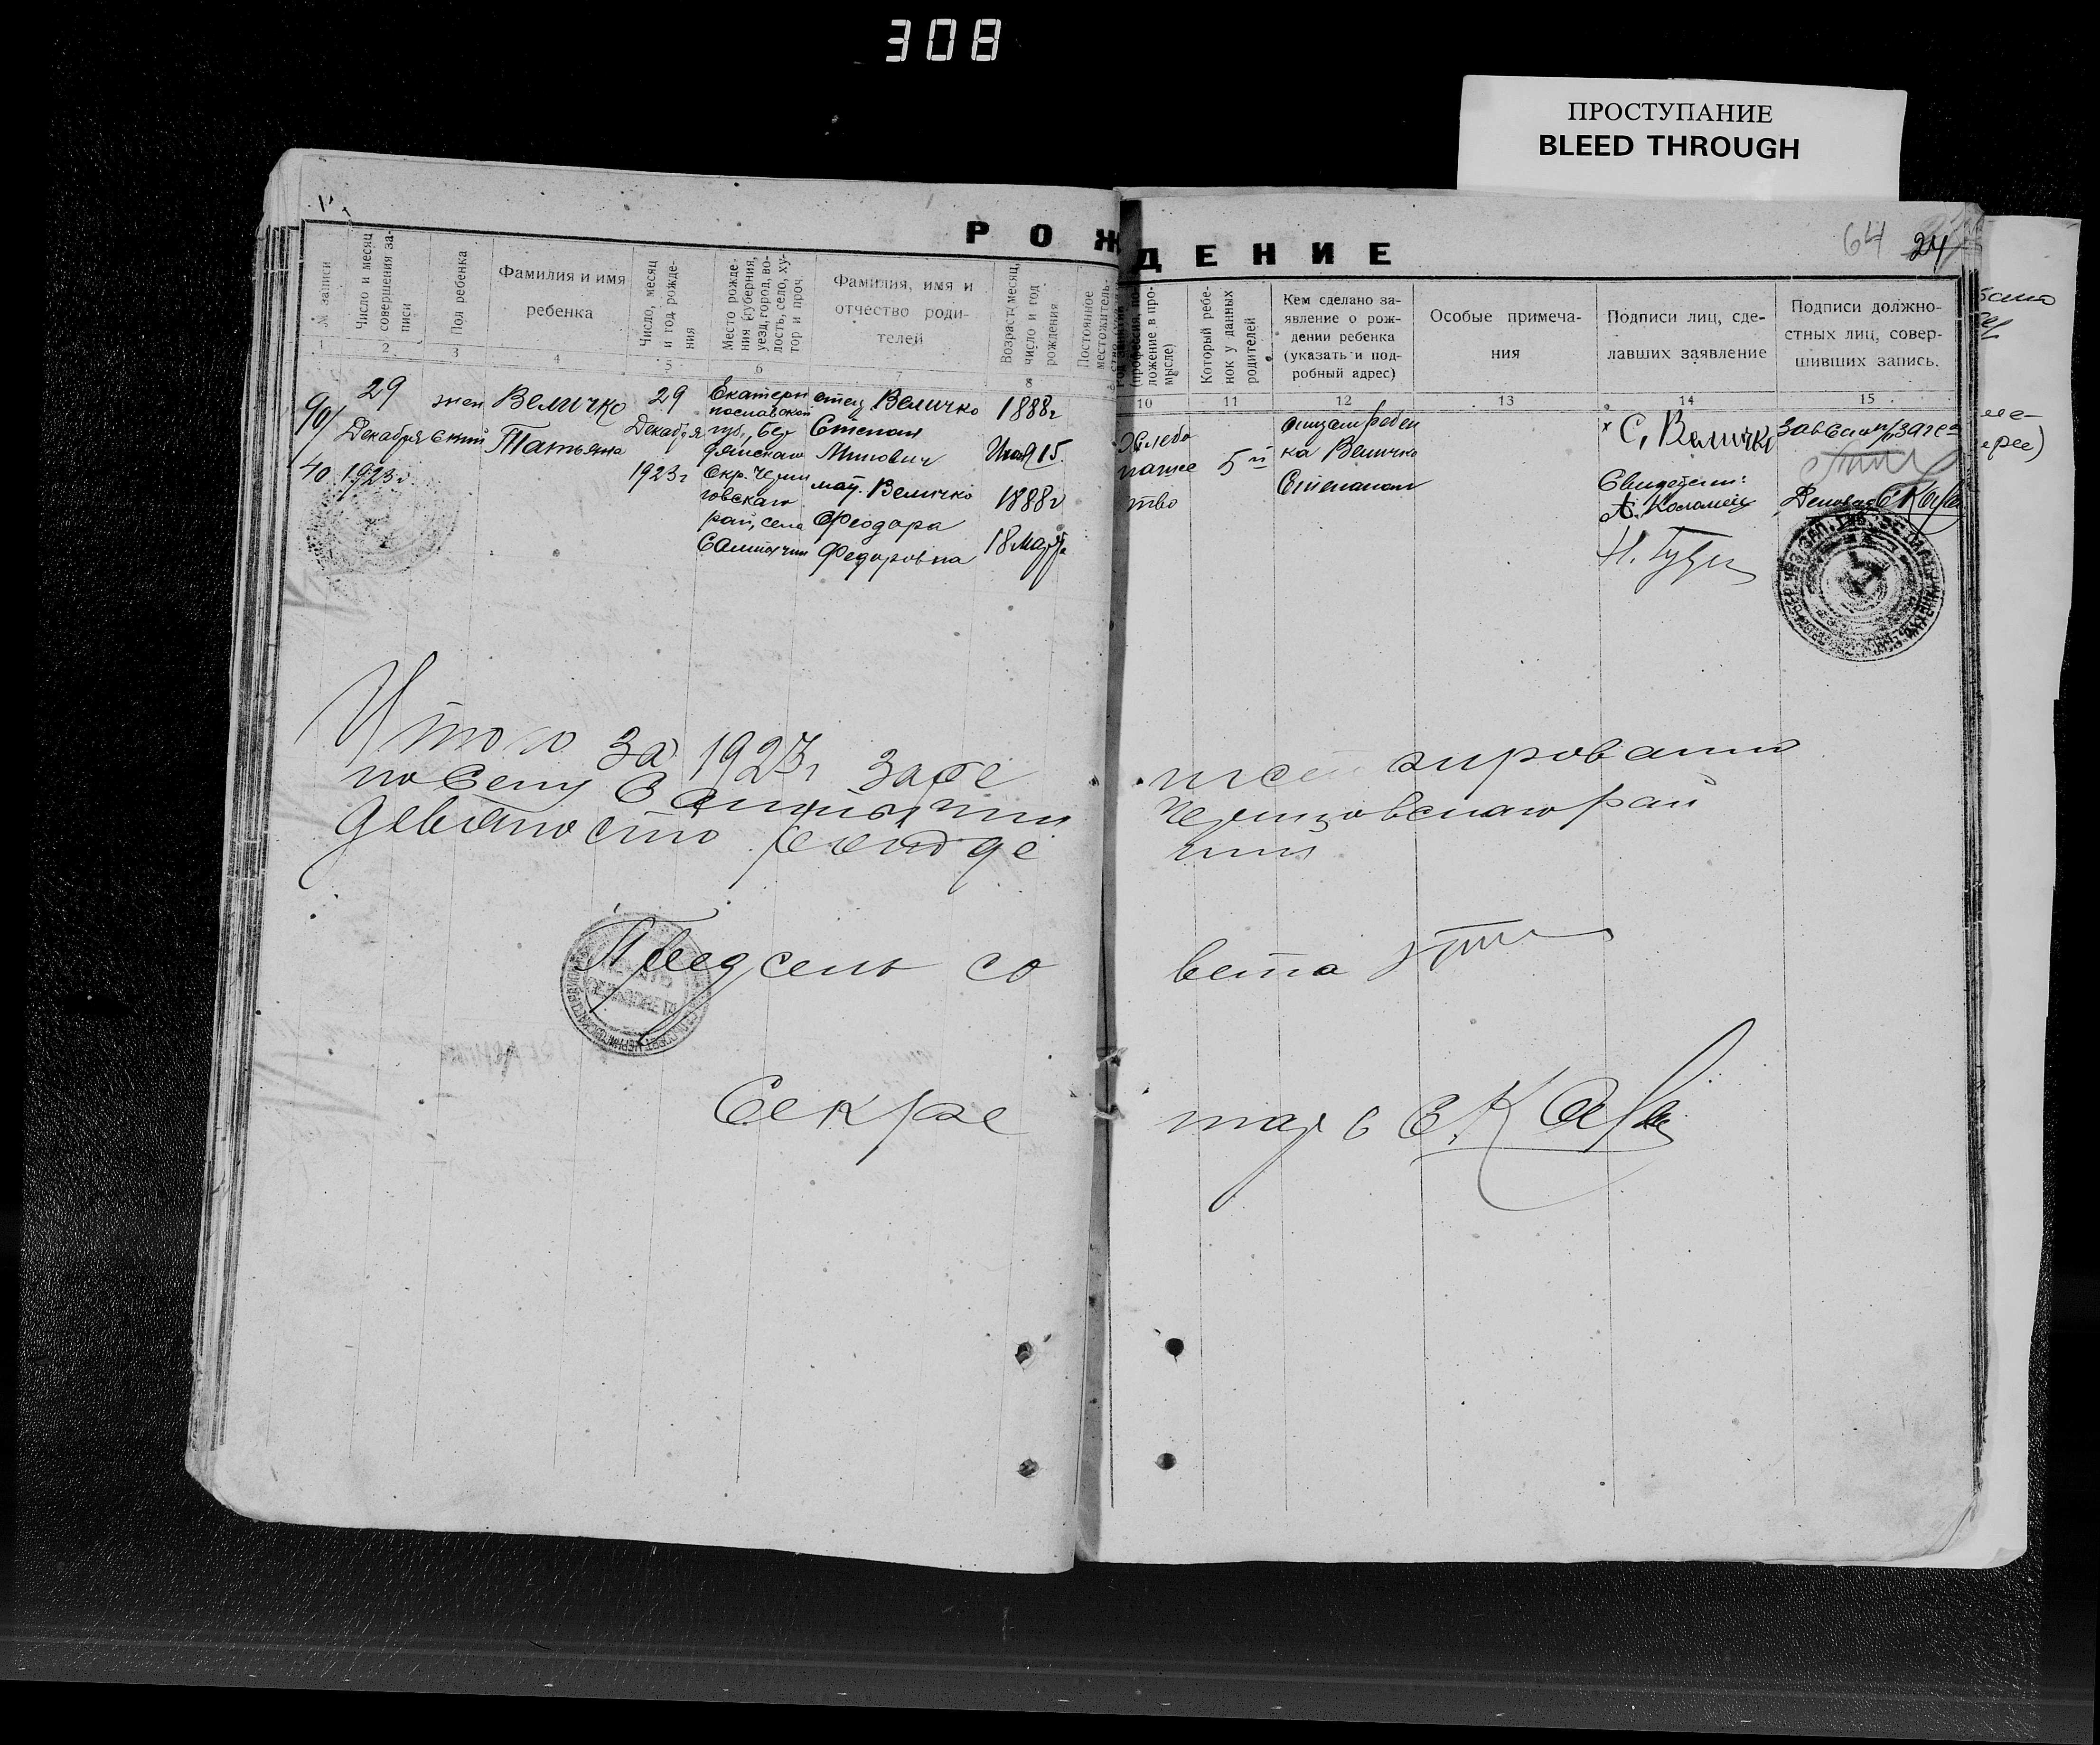 308
ПРОСТУПАНИЕ
BLEED THROUGH
РОЖДЕНИЕ
64 24
№ записи
Число и месяц совершения за-
писи
Пол ребенка
Фамилия и имя
ребенка
Число, месяц
и год рожде-
ния
Место рожде-
ния (губерния,
уезд, город, во-
лость, село, ху-
тор и проч.
Фамилия, имя и
отчество роди-
телей
Возраст: месяц,
число и год
рождения
Постоянное
местожитель-
(профессия, по-
ложение в про-
мысле)
Который ребе-
нок у данных
родителей
Кем сделано за-
явление о рож-
дении ребенка
(указать и под-
робный адрес)
Особые примеча-
ния
Подписи лиц, сде-
лавших заявление
Подписи должно-
стных лиц, совер-
шивших запись.
1 2 3 4 5 6 7 8 10 11 12 13 14 15
90/
40
29
Декабря
1923г.
жен
ский
Величко
Татьяна
29
Декабря
1923г
Екатери
нославской
губ., Бер
дянскаго
Окр. Черни
говскаго
рай, села
отец Величко
Степан
мат. Величко
Феодора
Федоровна
1888г
15.
1888г
18 Марта
Хлебо
паше
ство
5й
отцом ребен
ка Величко
Степаном
С. Величко
Свидетели:
А. Коломиец
Итого за 1923г заре гистрировано
по селу Черниговскаго рай
девяносто
Предсель со вета
Секре тарь